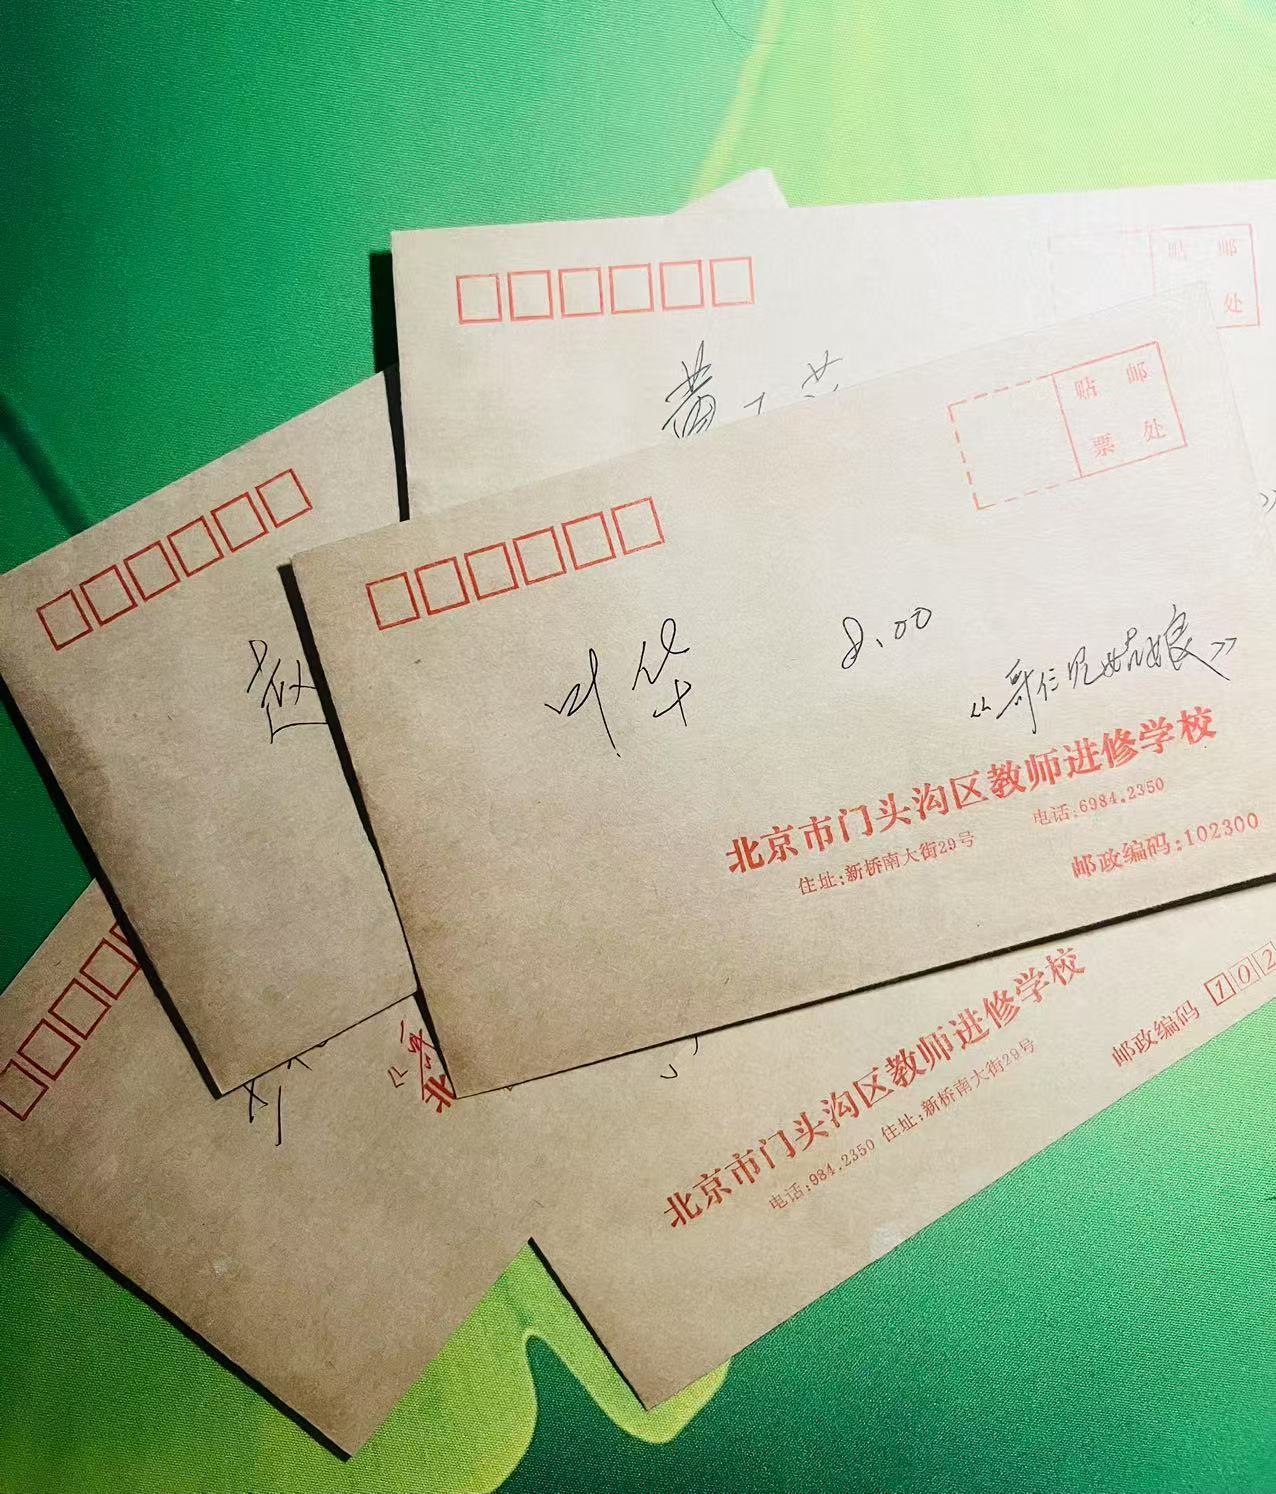 贴 邮
处
黄
贴 邮
票 处
赵
叶华 8.00
《哥仨见姑娘》
北京市门头沟区教师进修学校
电话:6984.2350
住址:新桥南大街29号
邮政编码:102300
刘
北
北京市门头沟区教师进修学校
电话:984.2350 住址:新桥南大街29号
邮政编码 102